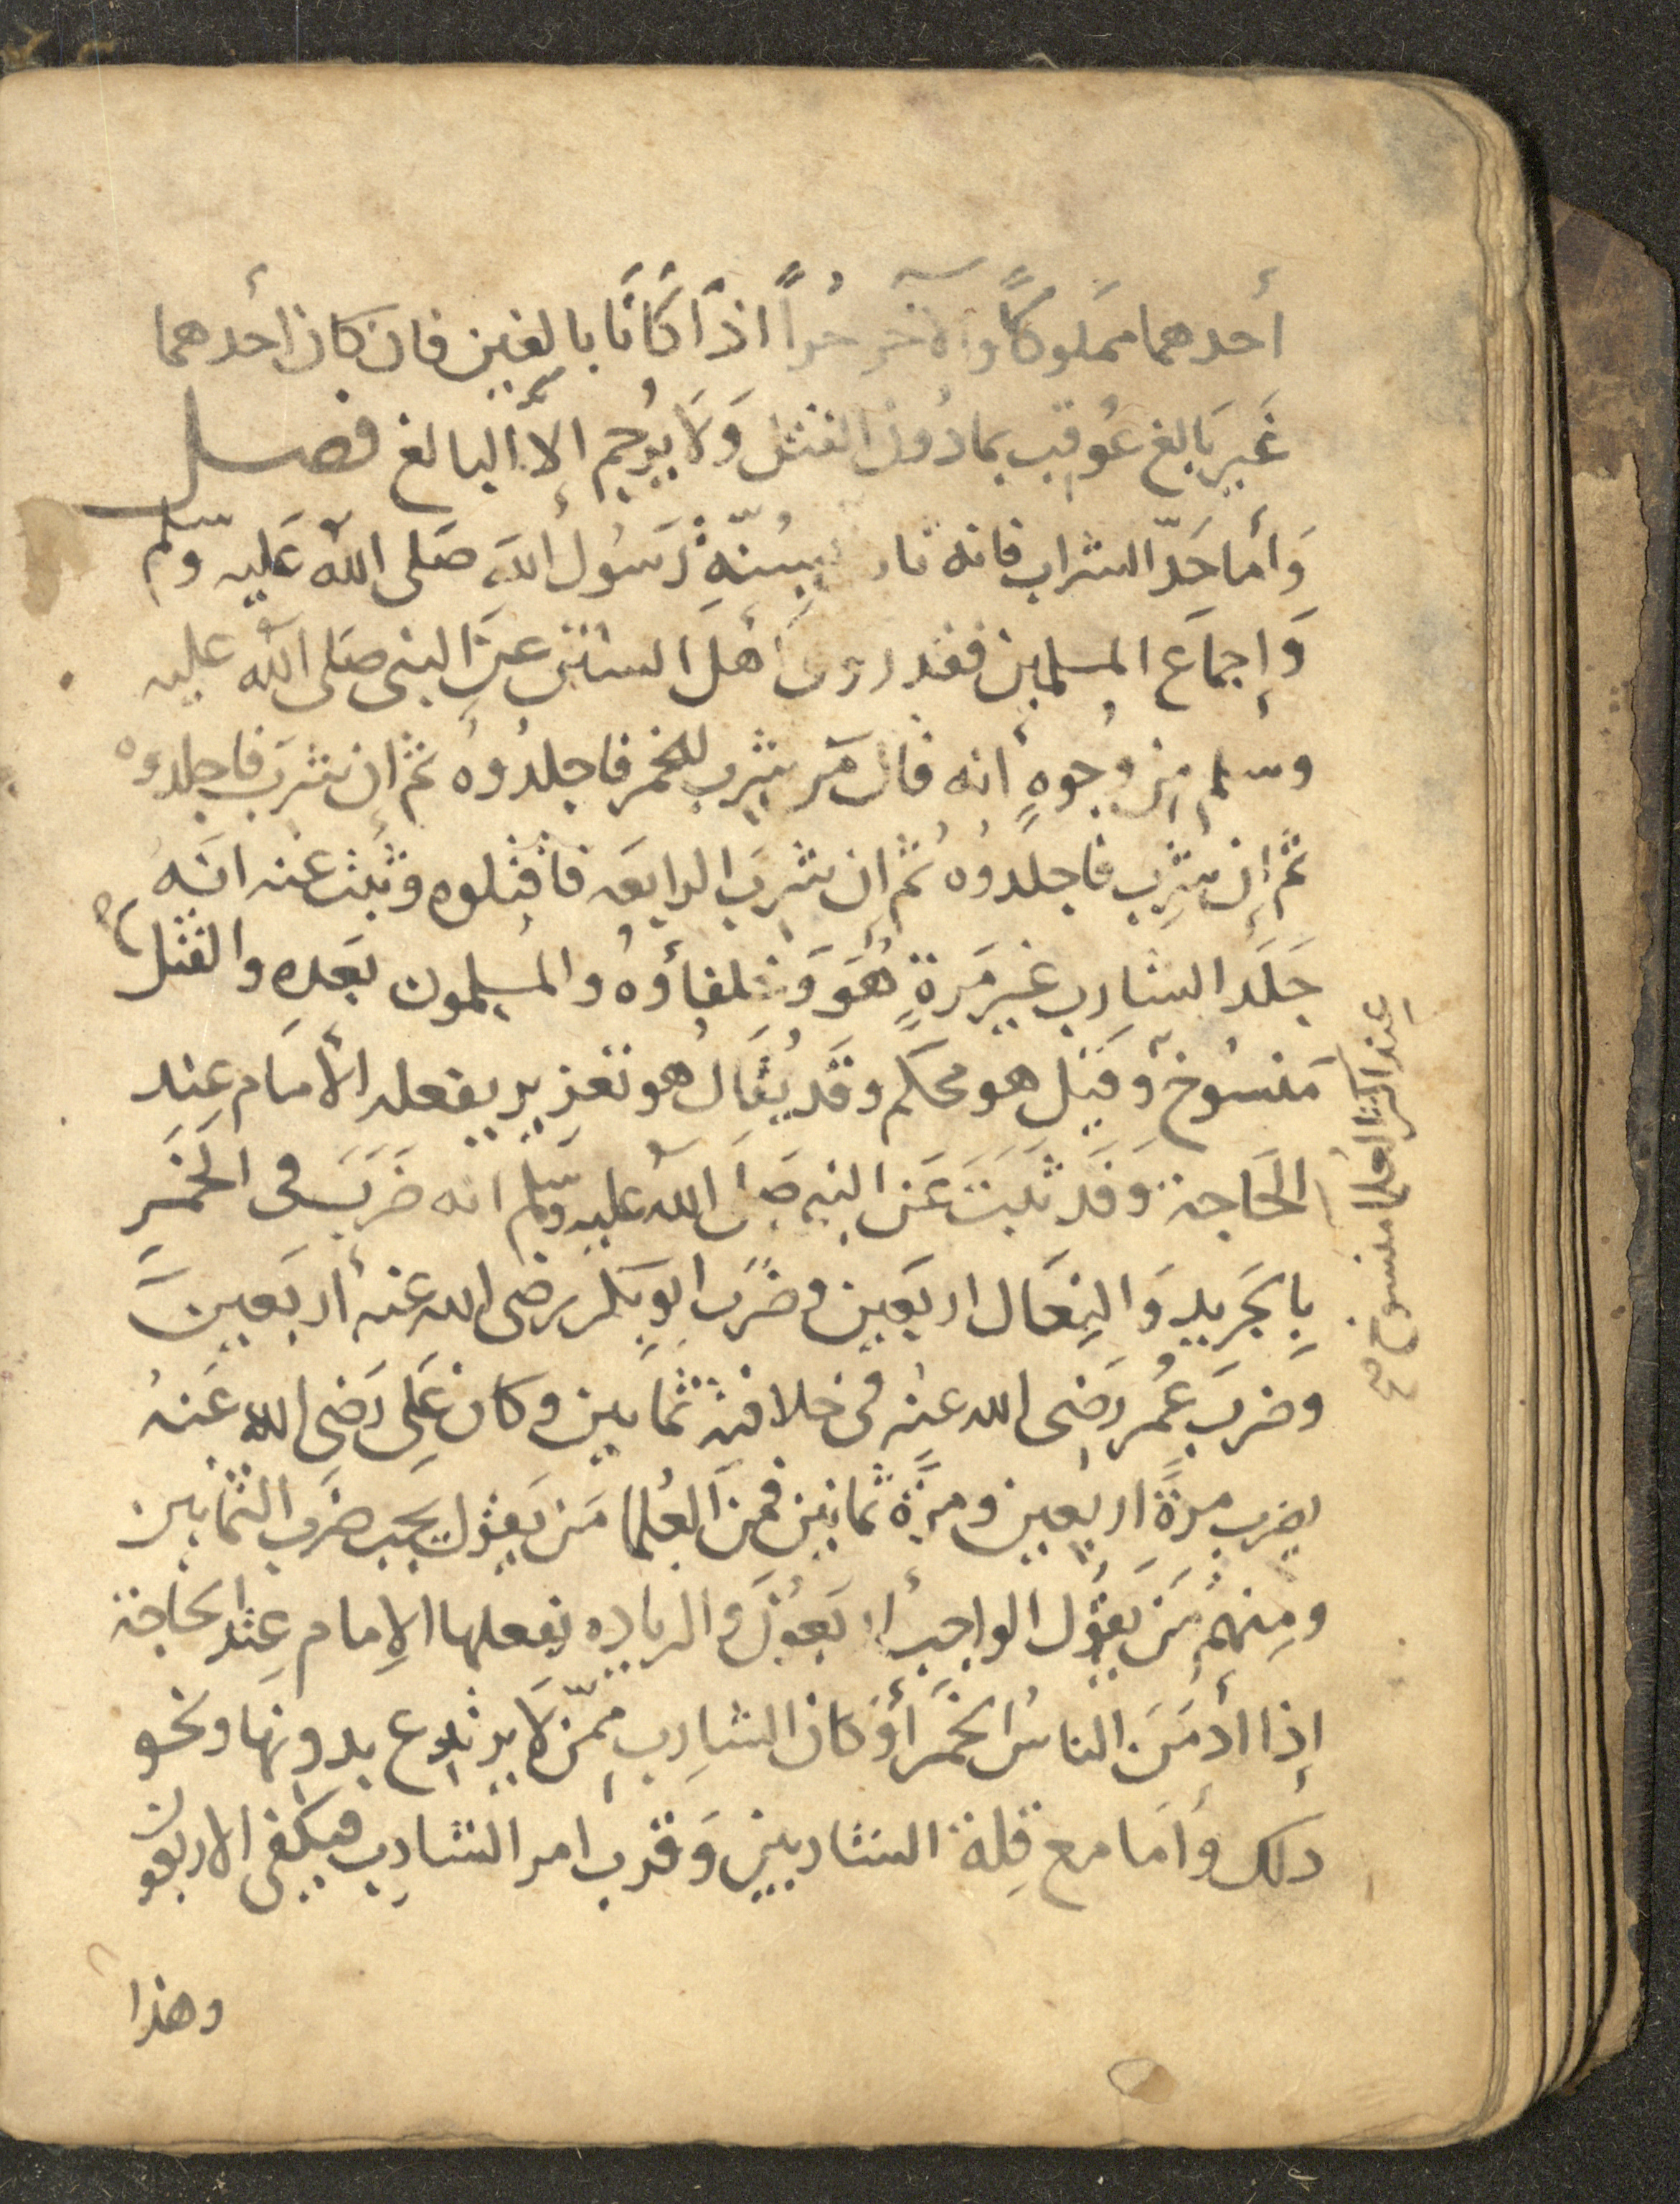 أحدهما مملوكًا والآخر حُرًا اذا كَانَا بالغين فان كان أحدهما
غَيرَ بَالغ عُوقِب بما دُون القتل وَلَا يُرجم الا البالغ فصل
وَأما حَدّ الشراب فانه ثا بِسُنّةِ رَسُول الله صَلى الله عَليه وسلم
وَإجماع المسلمين فقد روى أهل السنن عن النبى صَلى الله عليه
وسلم مِن وُجوهٍ أنه قال مَن شرب الخمر فاجلدُوه ثم ان شرَب فاجلدوه
ثم إن شرِب فاجلدُوه ثُم إن شرِبَ الرابعه فاقتلوه وثبت عنه انه
جَلَدَ الشارِب غير مَرةٍ هُوَ وَخلفاؤه والمسلمون بَعده والقتل
مَنسُوخ وقيل هو محكم وقَد يُقَالُ هو تعزير يفعله الأمام عِند
الحَاجة وَقَد ثَبَتَ عَن النبي صَلى الله عليه وسلم انه ضَرَبَ فى الخمرِ
بِالجَرِيدِ وَالنِعَال اربَعين وضرَب ابو بَكر رضى الله عنه أربَعِينَ
وضرب عُمر رَضى الله عنه فى خلافته ثمانين وكان عَلى رَضى الله عَنهُ
يضرب مرةً اربعين ومرةً ثمانين فمن العُلما مَن يَقول يجب ضَرب الثمانين
ومنهم مَن يَقول الواجب أربَعُون والزياده يفعلها الإمام عِند الحاجة
إذا أدمَنَ الناسُ الخَمرَ أو كان الشارِب مِمّن لَا يرتدع بدونها ونحو
ذلك وأما مع قِلة الشاربين وَقرب امر الشارِب فيكفى الاربعون
وهذا
عِند اكثر العلما منسوخ صح